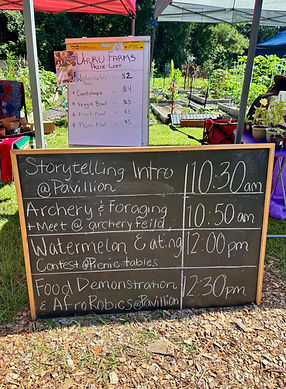 Uhuru Farms
Price List
Watermelon - $2
• Cantaloupe - $4
• Veggie Bowl - $5
• Fruit Bowl - $5
• Plum Flat - $5
Storytelling Intro
@Pavillion
10:30am
Archery & Foraging
*Meet @ archery feild
10:50am
Watermelon Eating
Contest @Picnic tables
12:00pm
Food Demonstration
& AfroRobics @Pavillion
12:30pm